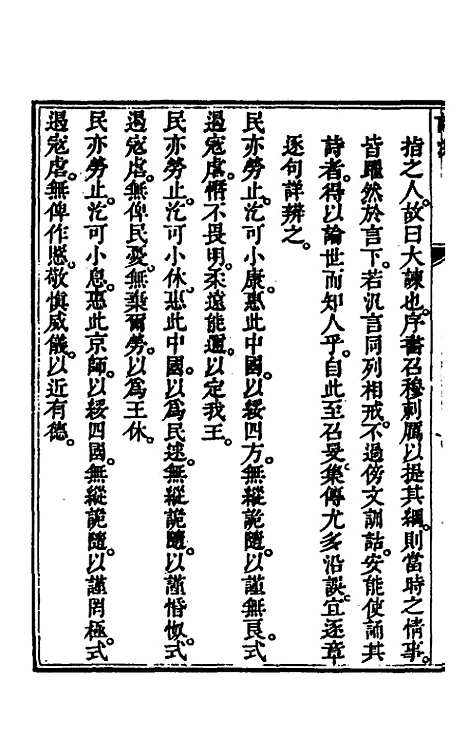 指之人。故曰大諫也。序書召穆刺厲以提其綱。則當時之情事。
皆躍然於言下。若汎言同列相戒。不過傍文訓詁。安能使誦其
詩者。得以論世而知人乎。自此至召旻。集傳尤多沿誤。宜逐章
逐句詳辨之。
民亦勞止。汔可小康。惠此中國。以綏四方。無縱詭隨。以謹無良。式
遏寇虐。憯不畏明。柔遠能邇。以定我王。
民亦勞止。汔可小休。惠此中國。以爲民逑。無縱詭隨。以謹惛怓。式
遏寇虐。無俾民憂。無棄爾勞。以爲王休。
民亦勞止。汔可小息。惠此京師。以綏四國。無縱詭隨。以謹罔極。式
遏寇虐。無俾作慝。敬慎威儀。以近有德。